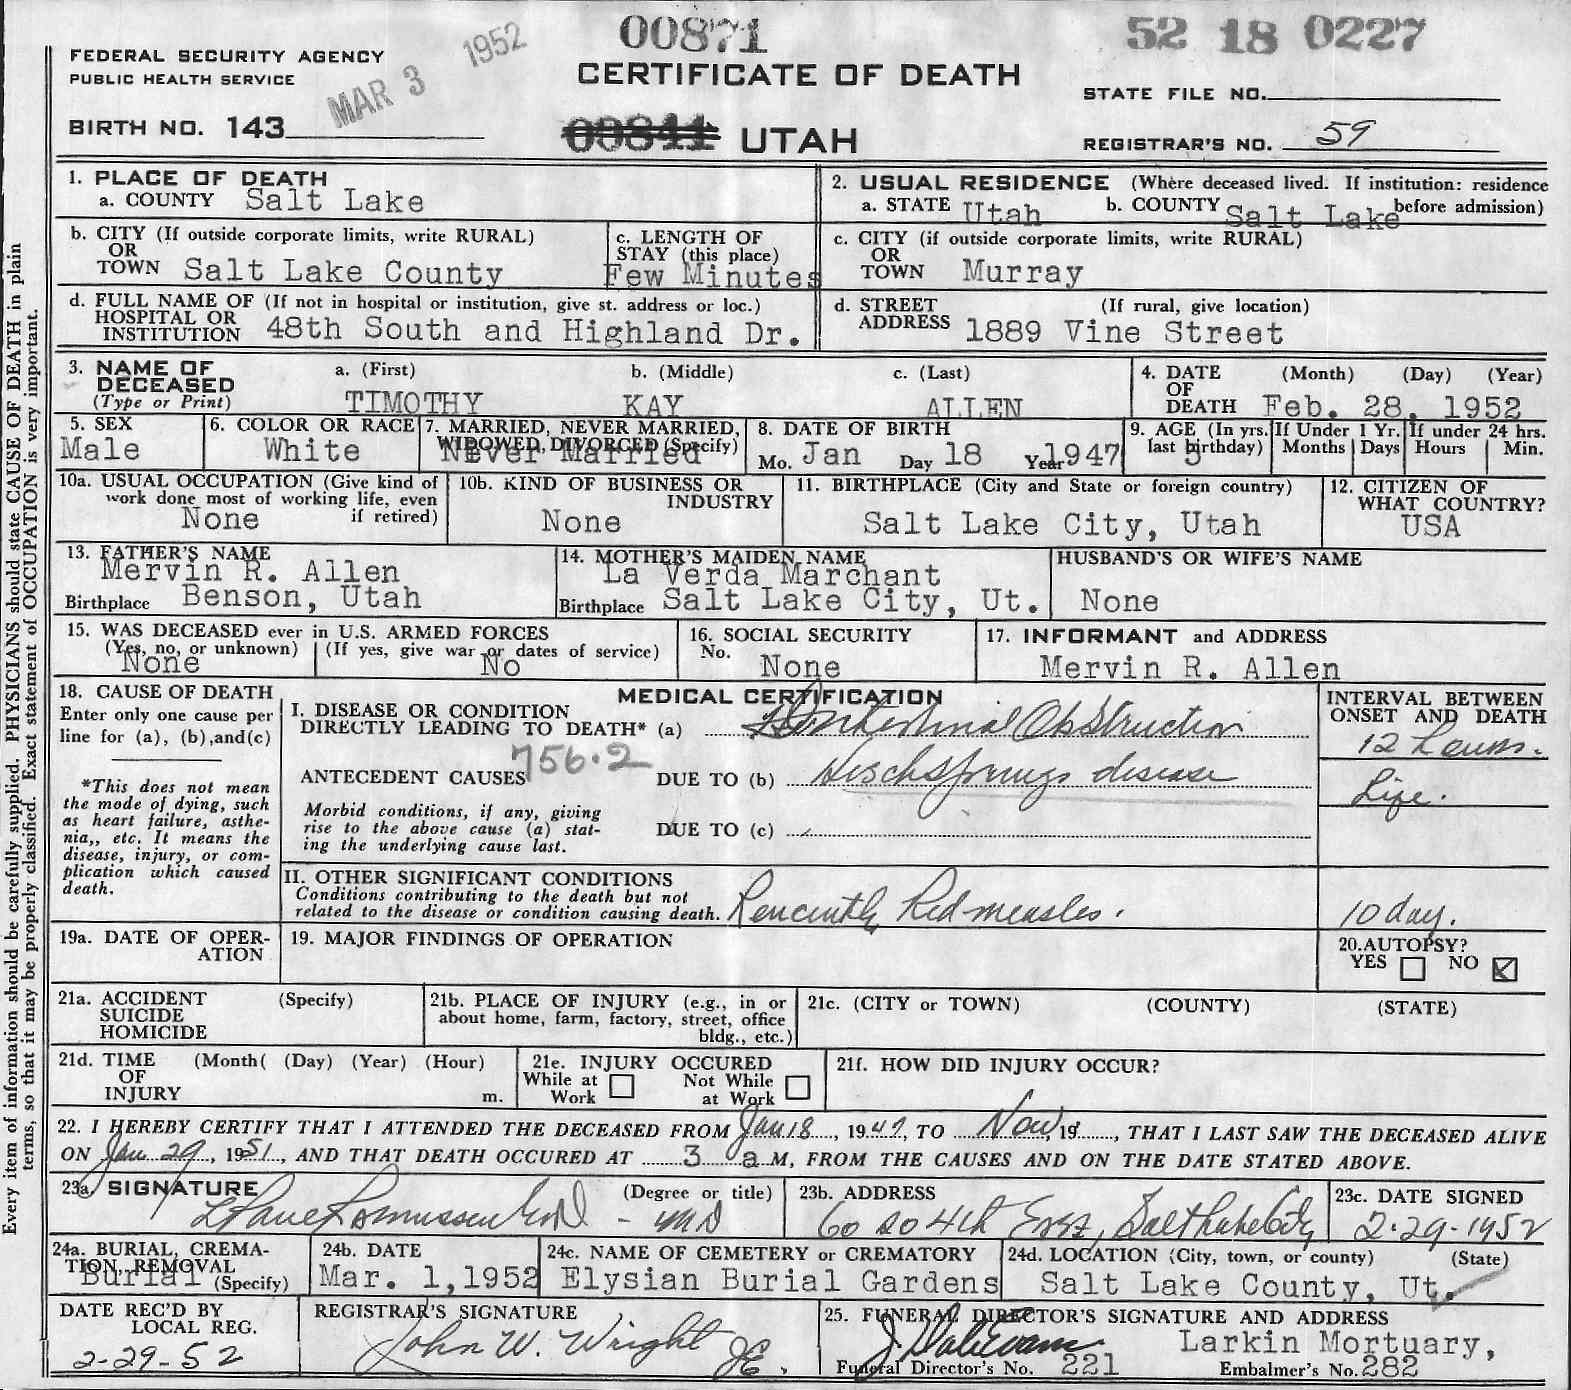 00871
52 18 0227
FEDERAL SECURITY AGENCY
PUBLIC HEALTH SERVICE
MAR 3 1952
CERTIFICATE OF DEATH
STATE FILE NO.
BIRTH NO. 143
00841 UTAH
REGISTRAR'S NO. 59
Every item of information should be carefully supplied. PHYSICIANS should state CAUSE OF DEATH in plain
terms, so that it may be properly classified. Exact statement of OCCUPATION is very important.
1. PLACE OF DEATH
a. COUNTY Salt Lake
2. USUAL RESIDENCE (Where deceased lived. If institution: residence
before admission)
a. STATE Utah b. COUNTY Salt Lake
b. CITY (If outside corporate limits, write RURAL)
OR
TOWN Salt Lake County
c. LENGTH OF
STAY (this place)
Few Minutes
c. CITY (if outside corporate limits, write RURAL)
OR
TOWN Murray
d. FULL NAME OF (If not in hospital or institution, give st. address or loc.)
HOSPITAL OR
INSTITUTION 48th South and Highland Dr.
d. STREET (If rural, give location)
ADDRESS 1889 Vine Street
3. NAME OF
DECEASED
(Type or Print)
a. (First) b. (Middle) c. (Last)
TIMOTHY KAY ALLEN
4. DATE (Month) (Day) (Year)
OF
DEATH Feb. 28, 1952
5. SEX
Male
6. COLOR OR RACE
White
7. MARRIED, NEVER MARRIED,
WIDOWED, DIVORCED (Specify)
Never Married
8. DATE OF BIRTH
Mo. Jan Day 18 Year 1947
9. AGE (In yrs.
last birthday)
5
If Under 1 Yr.
Months Days
If under 24 hrs.
Hours Min.
10a. USUAL OCCUPATION (Give kind of
work done most of working life, even
if retired)
None
10b. KIND OF BUSINESS OR
INDUSTRY
None
11. BIRTHPLACE (City and State or foreign country)
Salt Lake City, Utah
12. CITIZEN OF
WHAT COUNTRY?
USA
13. FATHER'S NAME
Mervin R. Allen
Birthplace Benson, Utah
14. MOTHER'S MAIDEN NAME
La Verda Marchant
Birthplace Salt Lake City, Ut.
HUSBAND'S OR WIFE'S NAME
None
15. WAS DECEASED ever in U.S. ARMED FORCES
(Yes, no, or unknown) (If yes, give war or dates of service)
None No
16. SOCIAL SECURITY
No. None
17. INFORMANT and ADDRESS
Mervin R. Allen
18. CAUSE OF DEATH
Enter only one cause per
line for (a), (b), and (c)
*This does not mean
the mode of dying, such
as heart failure, asthe-
nia,, etc. It means the
disease, injury, or com-
plication which caused
death.
MEDICAL CERTIFICATION
I. DISEASE OR CONDITION
DIRECTLY LEADING TO DEATH* (a) Intestinal Obstruction
756.2
ANTECEDENT CAUSES DUE TO (b) Hirschsprungs disease
Morbid conditions, if any, giving
rise to the above cause (a) stat-
ing the underlying cause last.
DUE TO (c)
INTERVAL BETWEEN
ONSET AND DEATH
12 hours.
Life.
II. OTHER SIGNIFICANT CONDITIONS
Conditions contributing to the death but not
related to the disease or condition causing death. Rencently Red measles.
10 day.
19a. DATE OF OPER-
ATION
19. MAJOR FINDINGS OF OPERATION
20. AUTOPSY?
YES NO
21a. ACCIDENT (Specify)
SUICIDE
HOMICIDE
21b. PLACE OF INJURY (e.g., in or
about home, farm, factory, street, office
bldg., etc.)
21c. (CITY or TOWN) (COUNTY) (STATE)
21d. TIME (Month( (Day) (Year) (Hour)
OF
INJURY m.
21e. INJURY OCCURED
While at Not While
Work at Work
21f. HOW DID INJURY OCCUR?
22. I HEREBY CERTIFY THAT I ATTENDED THE DECEASED FROM Jan 18, 1947, TO Now, 19, THAT I LAST SAW THE DECEASED ALIVE
ON Jan 29, 1951, AND THAT DEATH OCCURED AT 3 a M, FROM THE CAUSES AND ON THE DATE STATED ABOVE.
23a. SIGNATURE (Degree or title)
Rasmussen - MD
23b. ADDRESS
60 So 4th East, Salt Lake City
23c. DATE SIGNED
2-29-1952
24a. BURIAL, CREMA-
TION, REMOVAL
(Specify)
Burial
24b. DATE
Mar. 1, 1952
24c. NAME OF CEMETERY or CREMATORY
Elysian Burial Gardens
24d. LOCATION (City, town, or county) (State)
Salt Lake County, Ut.
DATE REC'D BY
LOCAL REG.
2-29-52
REGISTRAR'S SIGNATURE
John W. Wright JE.
25. FUNERAL DIRECTOR'S SIGNATURE AND ADDRESS
Larkin Mortuary,
Funeral Director's No. 221 Embalmer's No. 282